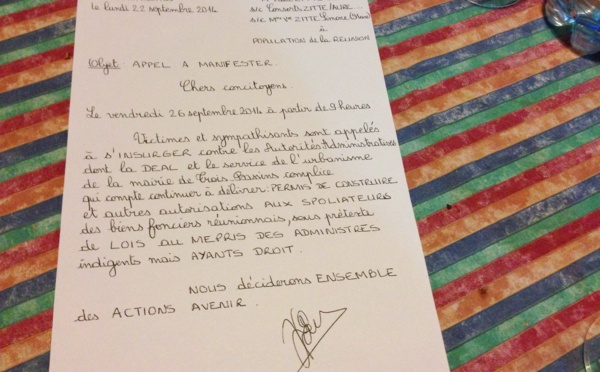 le lundi 22 septembre 2014
s/c Consorts ZITTE/AURE...
s/c Mme Vve ZITTE Simone
à
POPULATION de la REUNION
Objet: APPEL A MANIFESTER.
Chers concitoyens.
Le vendredi 26 septembre 2014 à partir de 9 heures
Victimes et sympathisants sont appelés
à s'INSURGER contre les Autorités Administratives
dont la DEAL et le service de l'urbanisme
de la mairie de Trois Bassins complice
qui compte continuer à délivrer: PERMIS DE CONSTRUIRE
et autres autorisations AUX SPOLIATEURS
des biens fonciers réunionnais, sous prétexte
de LOIS au MEPRIS DES ADMINISTRES
indigents mais AYANTS DROIT.
NOUS déciderons ENSEMBLE
des ACTIONS AVENIR.